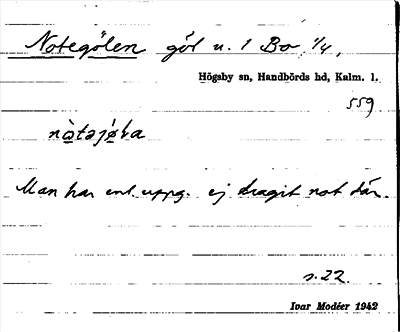 Notegölen göl u. 1 Bo 1/4,
Högsby sn, Handbörds hd, Kalm. l.
559
nò̱təjǿ̱lа
Man har enl. uppg. ej dragit not där.
s. 22.
Ivar Modéer 1942